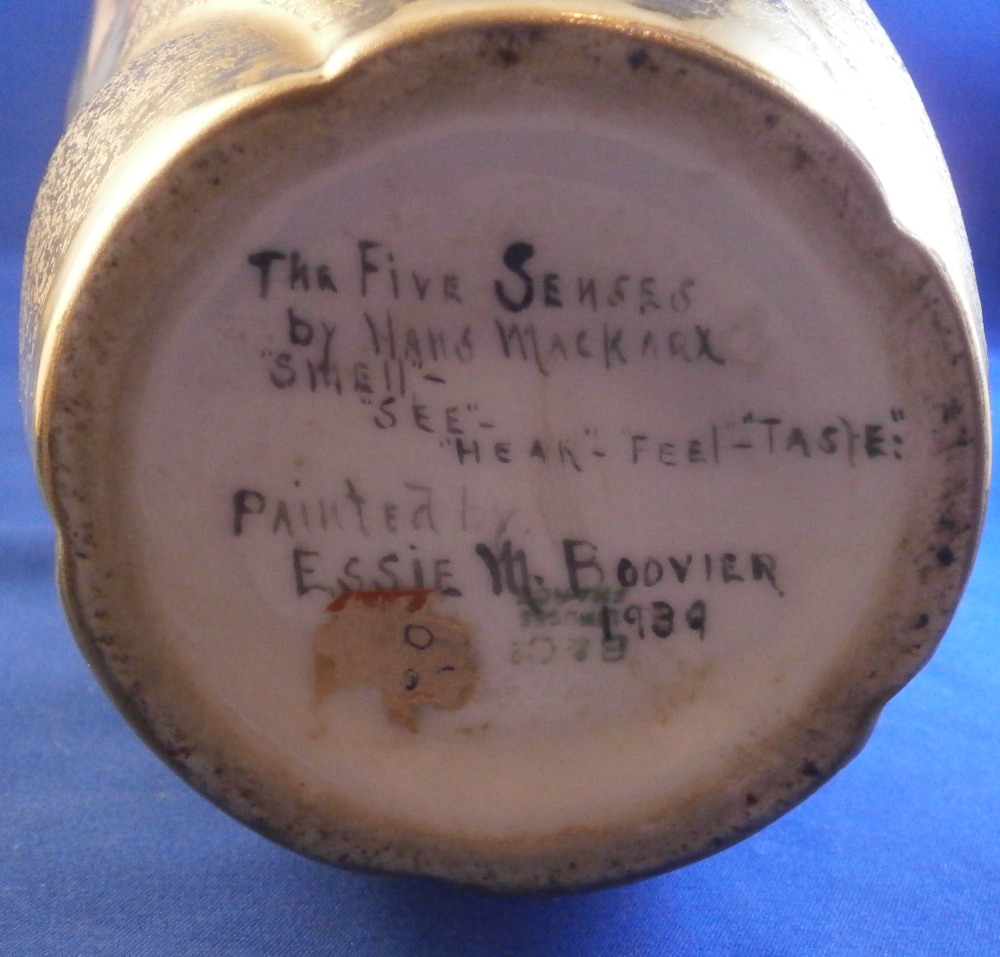 The Five Senses
by Hans Mackarx
"Smell"-
"See"-
"Hear"- Feel"-"Taste:"
Painted by
Essie M. Boovier
1939